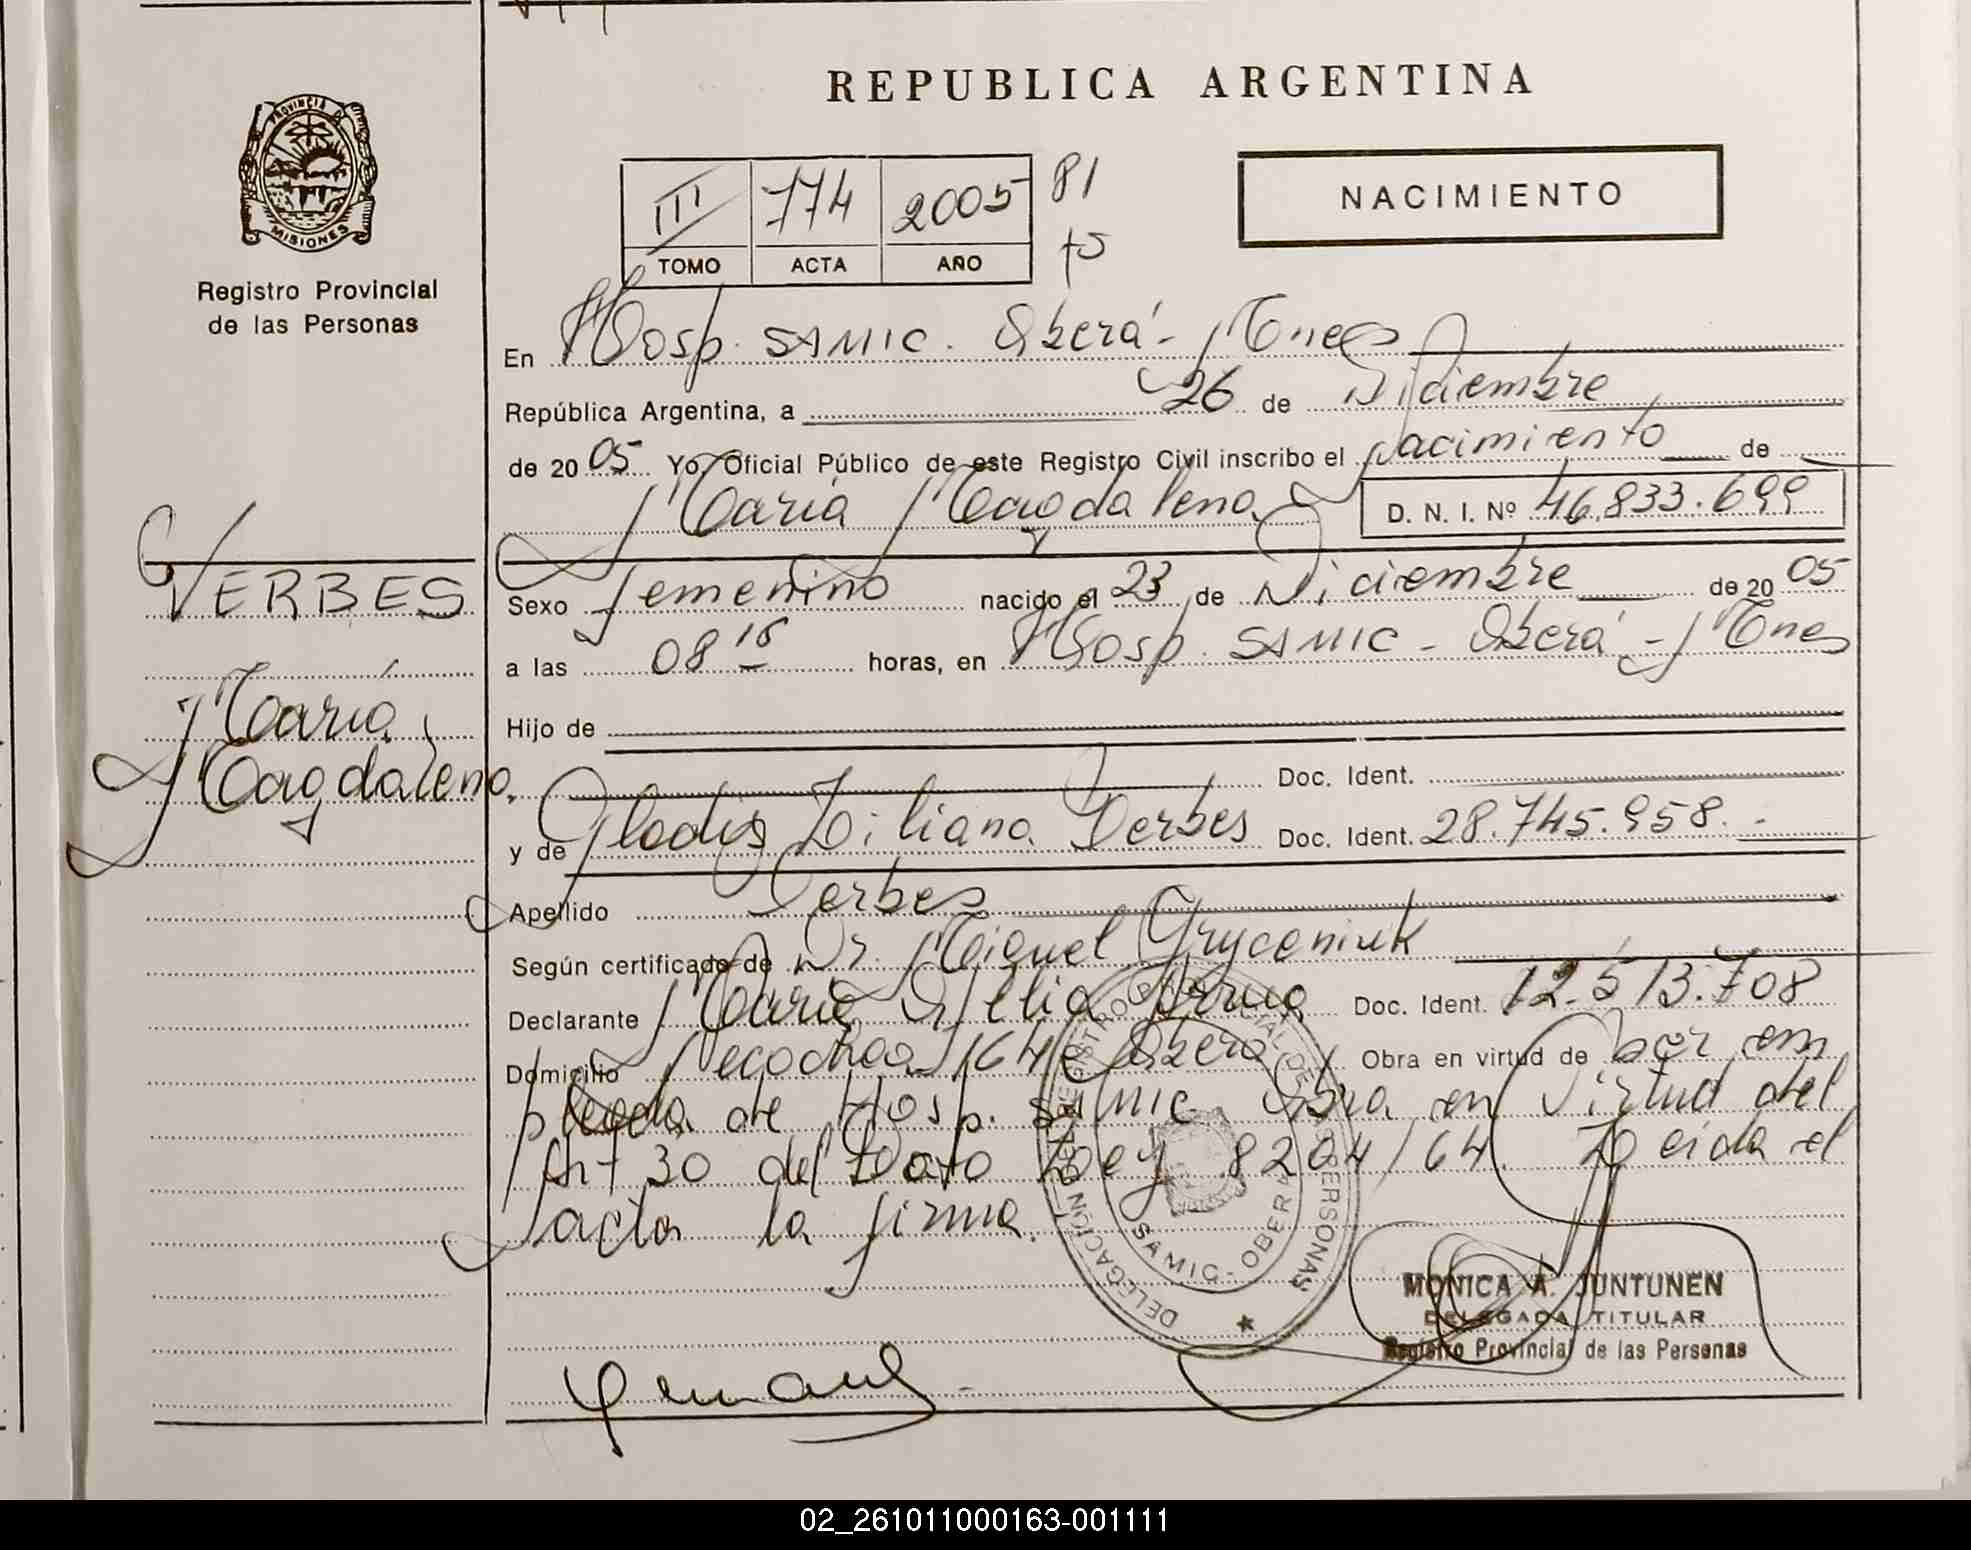 REPUBLICA ARGENTINA
PROVINCIA DE
MISIONES
Registro Provincial
de las Personas
III 774 2005 81
TOMO ACTA AÑO 75
NACIMIENTO
En Hosp. SAMIC. Oberá - Mnes
República Argentina, a 26 de Diciembre
de 20 05 Yo, Oficial Público de este Registro Civil inscribo el Nacimiento de
María Magdalena D. N. I. Nº 46.833.699
VERBES
María
Magdalena
Sexo femenino nacido el 23 de Diciembre de 20 05
a las 08 15 horas, en Hosp. SAMIC - Oberá - Mnes
Hijo de
Doc. Ident.
y de Gladis Liliana Verbes Doc. Ident. 28.745.958.-
Apellido Verbes
Según certificado de Dr. Miguel Gryceniuk
Declarante María Doc. Ident. 12.513.708
Domicilio Necochea 164 Oberá Obra en virtud de ser em
pleada de Hosp. SAMIC Obra en Virtud del
Art 30 del Dcto Ley 8204/64. Leída el
acta la firma.
DELEGACIÓN
REGISTRO PROVINCIAL DE LAS PERSONAS
SAMIC - OBERA
MONICA A. JUNTUNEN
DELEGADA TITULAR
Registro Provincial de las Personas
02_261011000163-001111